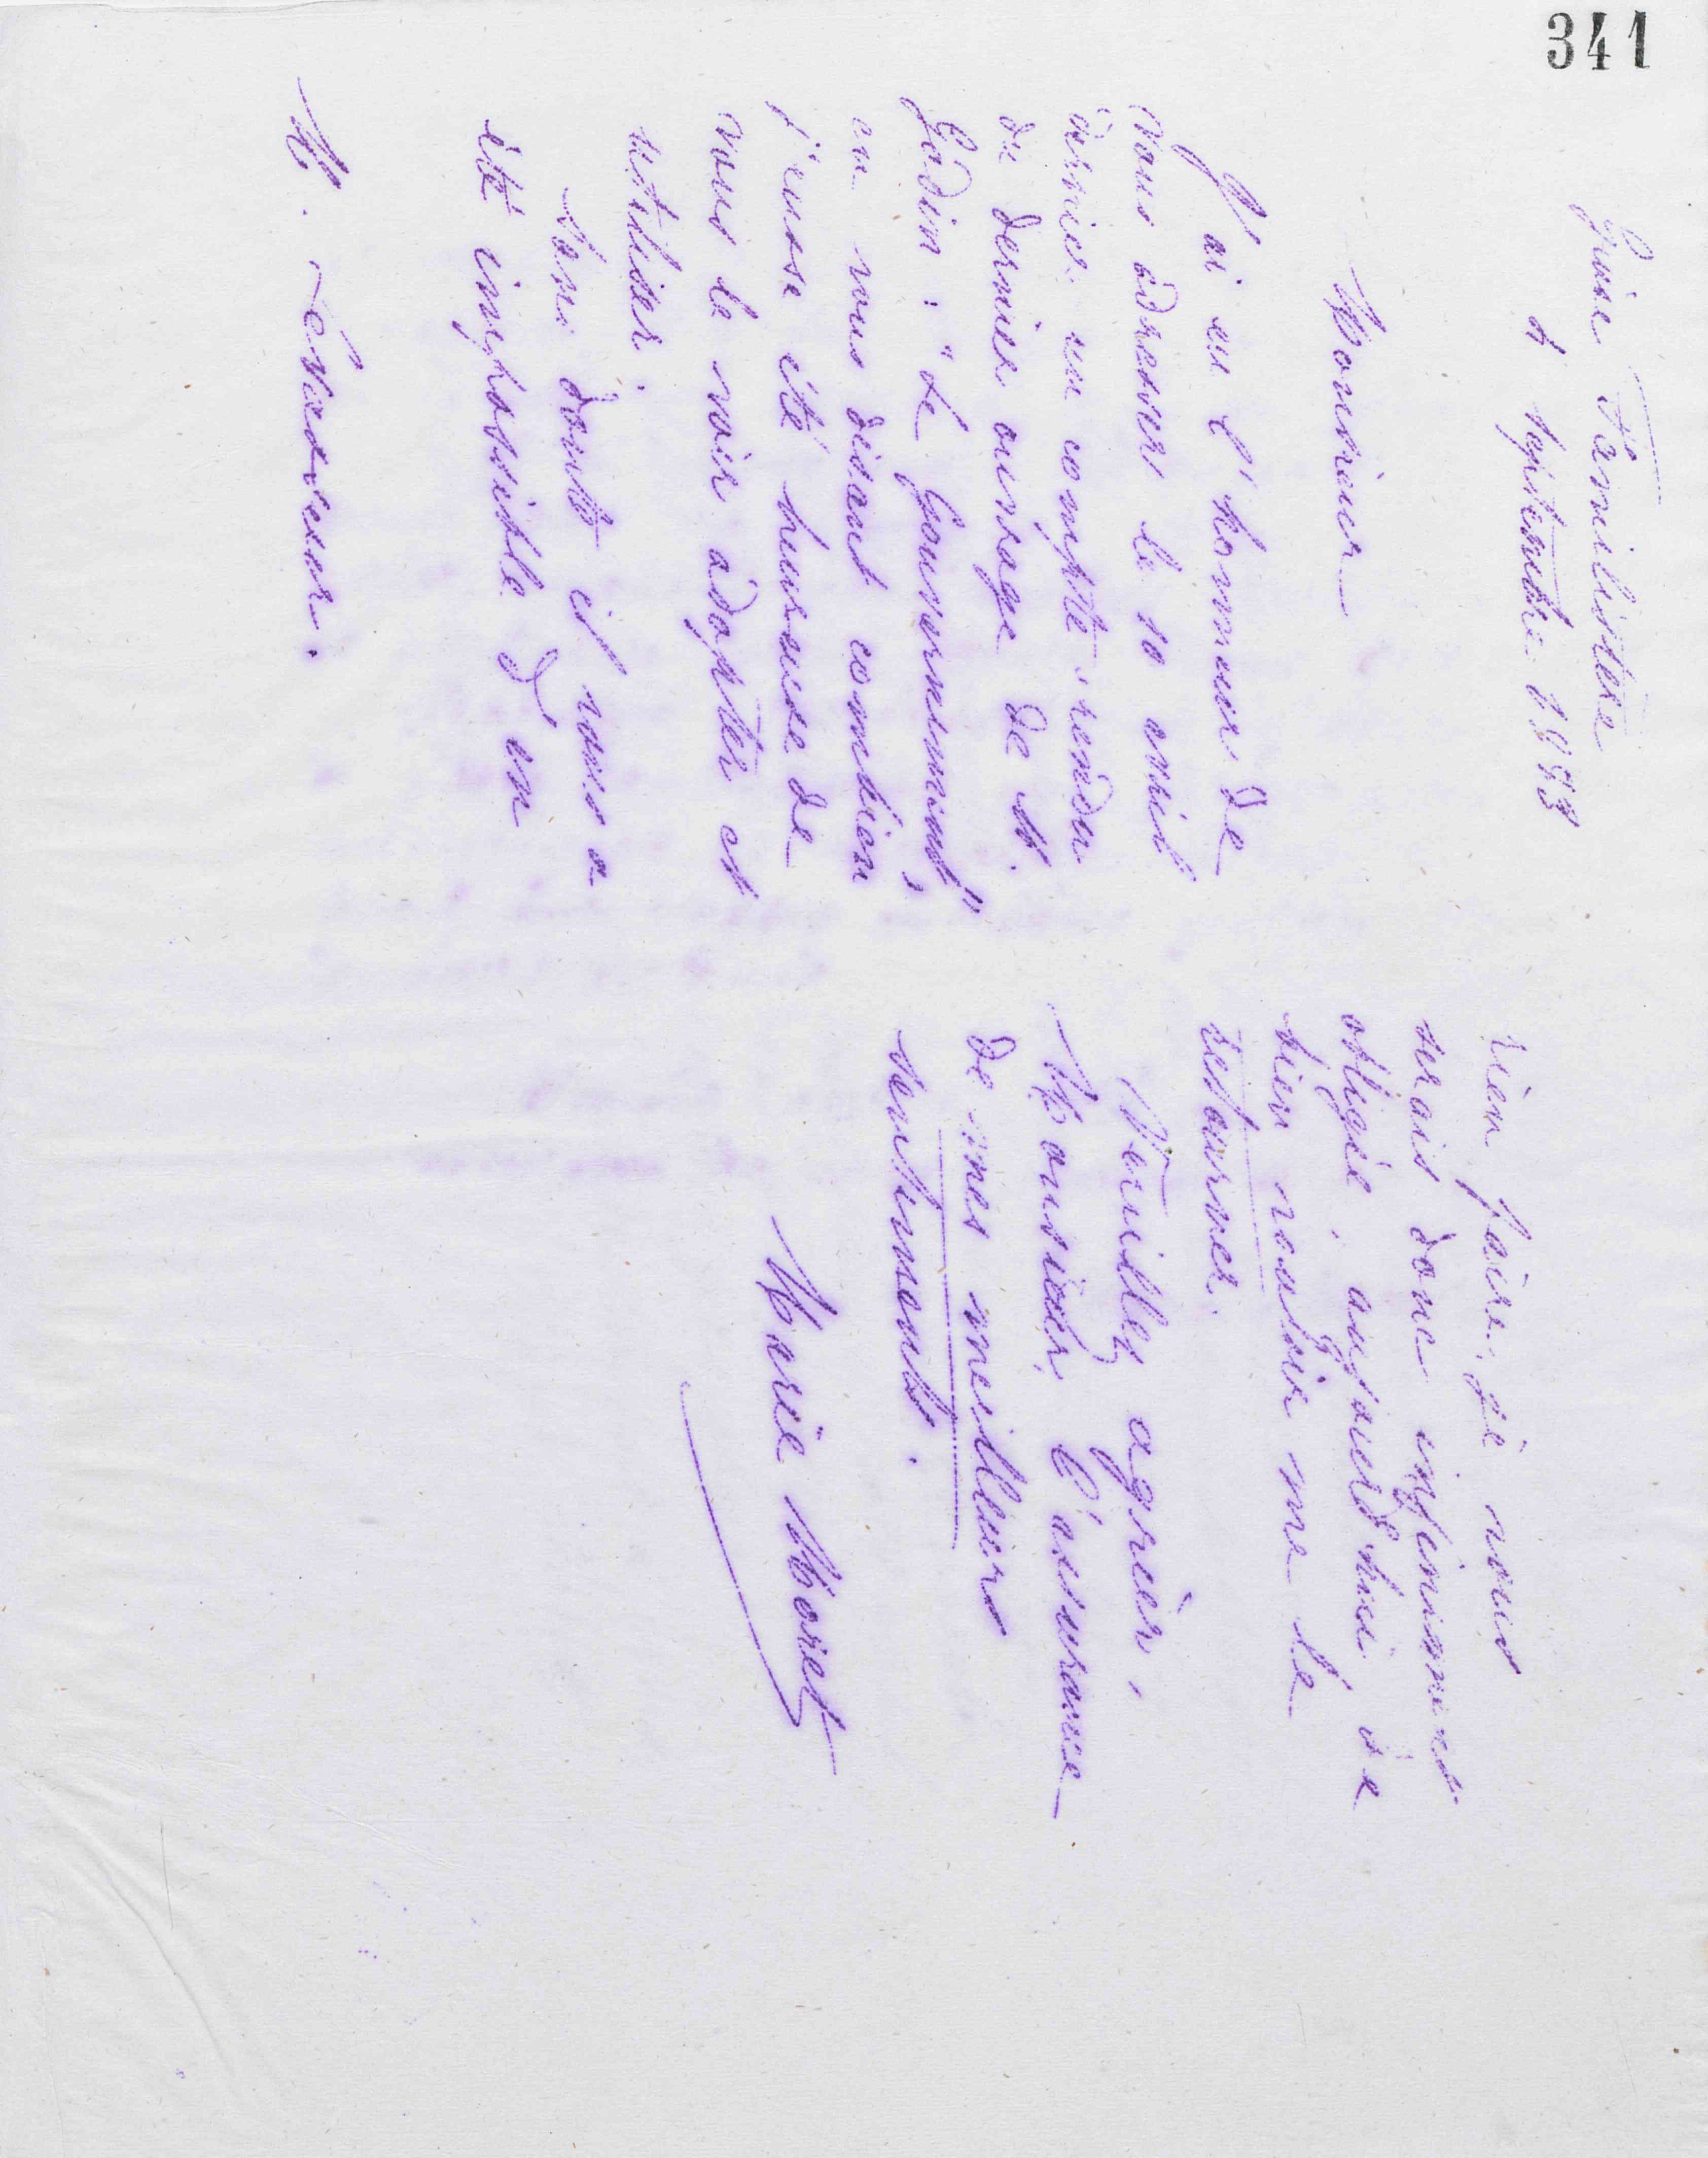 341
Guise Familistère
4 septembre 1883
Monsieur
J'ai eu l'honneur de
vous adresser le 10 avril
dernier un compte-rendu
du dernier ouvrage de M.
Godin : "Le Gouvernement",
en vous disant combien
j'eusse été heureuse de
vous le voir adopter et
utiliser.
Sans doute il vous a
été impossible d'en
M. Levasseur.
rien faire. Je vous
serais donc infiniment
obligée, aujourd'hui de
bien vouloir me le
retourner.
Veuillez agréer,
Monsieur, l'assurance
de mes meilleurs
sentiments.
Marie Moret